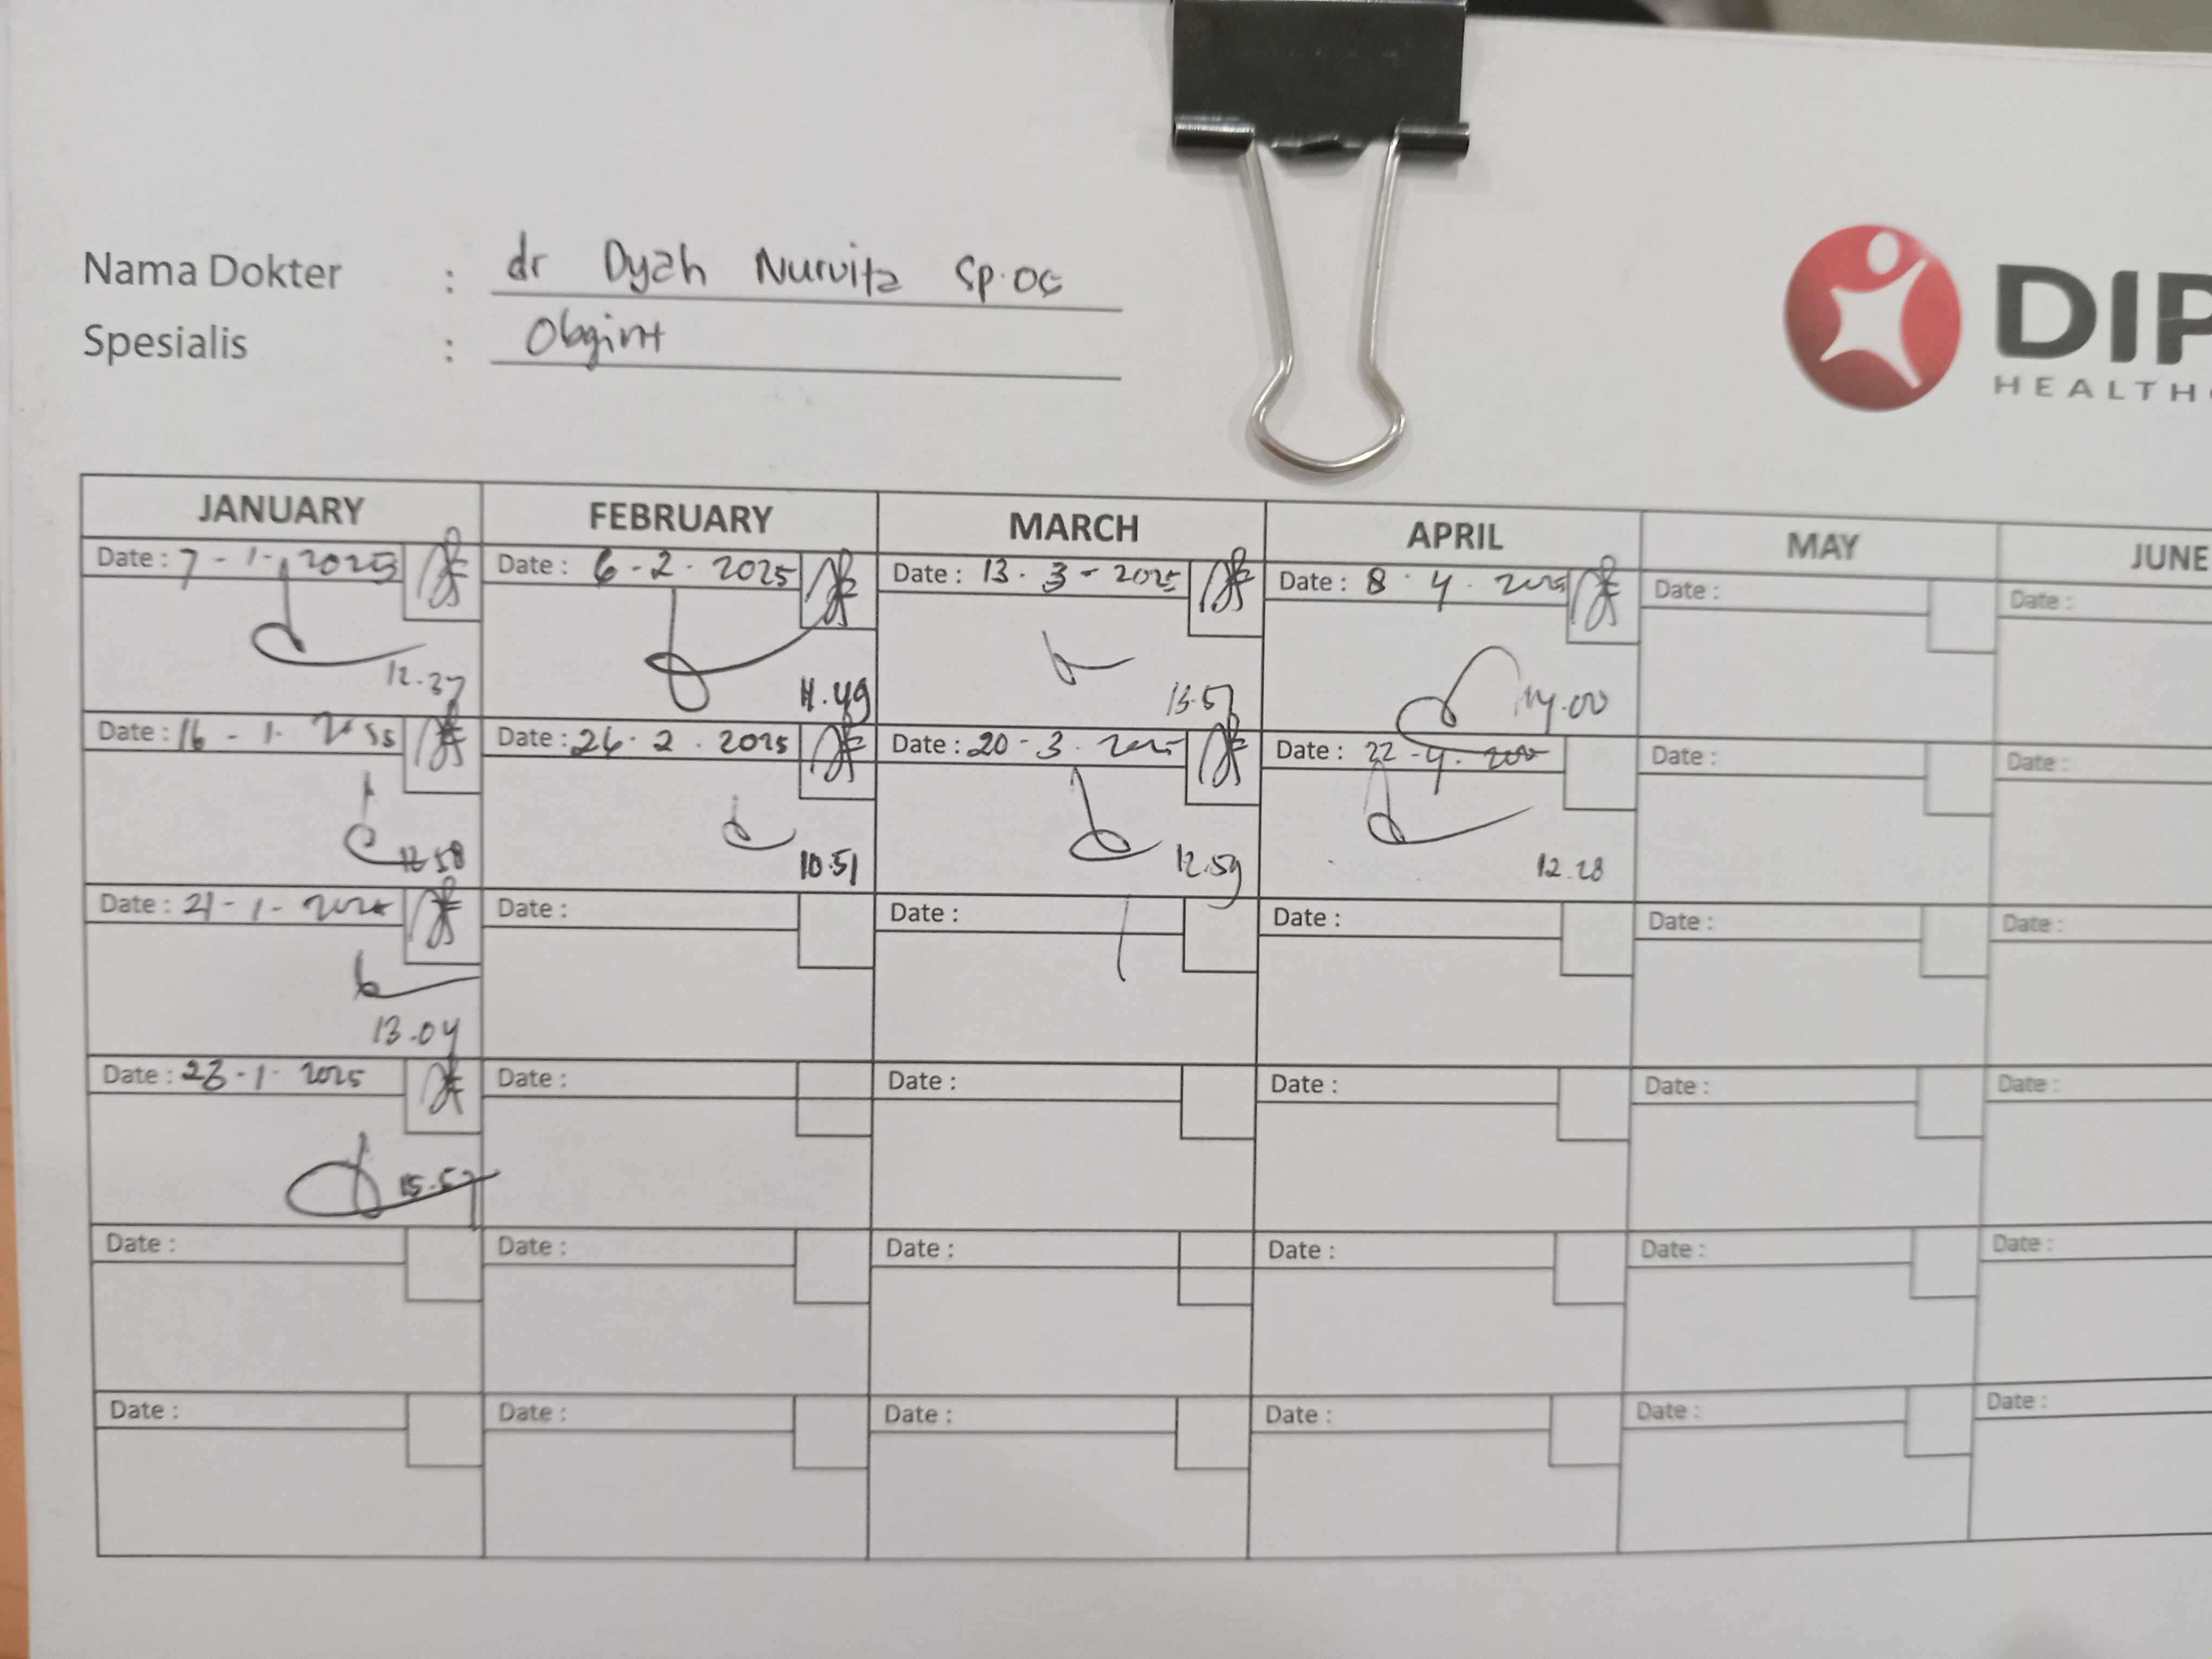 Nama Dokter : dr Dyah Nurvita Sp.OG
Spesialis : Obgin
DIP
HEALTH
JANUARY FEBRUARY MARCH APRIL MAY JUNE
Date : 7 - 1 - 2025 Date : 6 - 2 - 2025 Date : 13 - 3 - 2025 Date : 8 - 4 - 2025 Date : Date :
12.37 11.49 13.57 14.00
Date : 16 - 1 - Date : 26 - 2 - 2025 Date : 20 - 3 - 2025 Date : 22 - 4 - Date : Date :
12.58 10.51 12.59 12.28
Date : 21 - 1 - 2025 Date : Date : Date : Date : Date :
13.04
Date : 23 - 1 - 2025 Date : Date : Date : Date : Date :
15.57
Date : Date : Date : Date : Date : Date :
Date : Date : Date : Date : Date : Date :